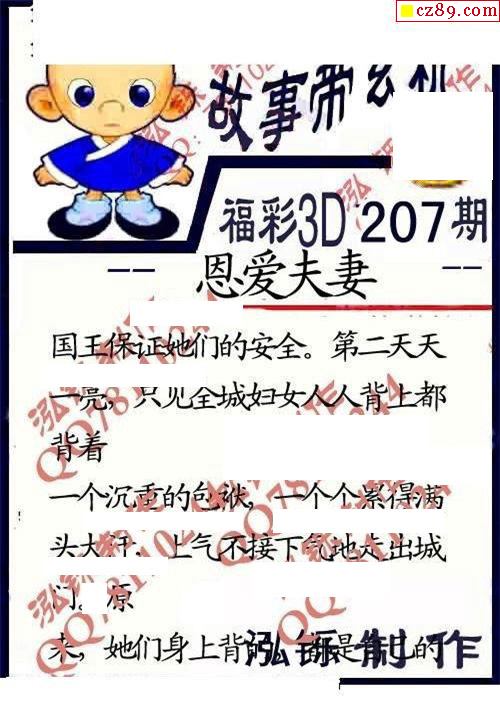 cz89.com
故事带玄机
福彩3D 207期
恩爱夫妻
国王保证她们的安全。第二天天
一亮，只见全城妇女人人背上都
背着
一个沉重的包袱，一个个累得满
头大汗，上气不接下气地走出城
门。原
来，她们身上背的 都是自己的
泓铄制作